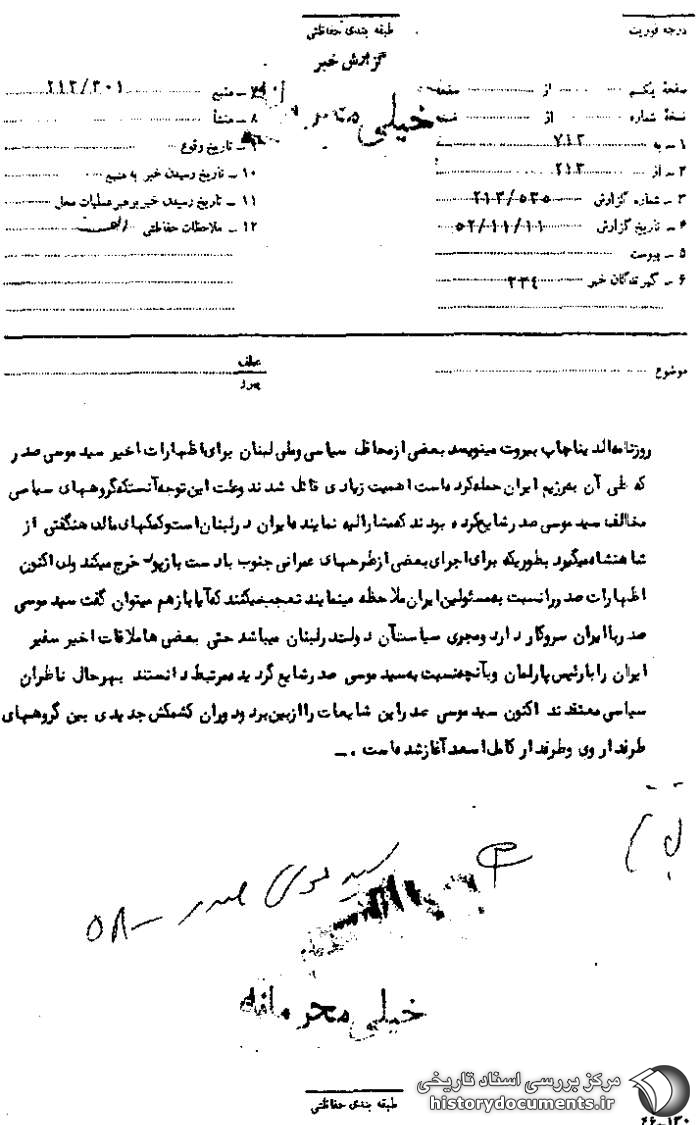 درجه فوریت
طبقه بندی حفاظتی
گزارش خبر
خیلی محرمانه
صفحهٔ یکم از صفحه
نسخهٔ شماره از نسخه
۱ ـ به ۷۱۲
۲ ـ از ۲۱۳
۳ ـ شماره گزارش ۲۱۳/۵۳۵
۴ ـ تاریخ گزارش ۵۲/۱۱/۱۱
۵ ـ پیوست
۶ ـ گیرندگان خبر ۲۳۴
۷ ـ منبع ۲۱۲/۳۰۱
۸ ـ منشأ
۹ ـ تاریخ وقوع
۱۰ ـ تاریخ رسیدن خبر به منبع
۱۱ ـ تاریخ رسیدن خبر برهبر عملیات محل
۱۲ ـ ملاحظات حفاظتی
موضوع
عطف
پیرو
روزنامه الدیناچاپ بیروت مینویسد بعضی ازمحافل سیاسی وملی لبنان برای اظهارات اخیر سید موسی صدر
که طی آن به رژیم ایران حمله کرده است اهمیت زیادی قائل شدند وعلت این توجه آنستکه گروههای سیاسی
مخالف سید موسی صدر شایع کرده بودند که مشارالیه نماینده ایران درلبنان است وکمکهای مالی هنگفتی از
شاهنشاه میگیرد بطوریکه برای اجرای بعضی ازطرحهای عمرانی جنوب بادست باز پول خرج میکند ولی اکنون
اظهارات صدر رانسبت به مسئولین ایران ملاحظه مینمایند تعجب میکنند که آیا بازهم میتوان گفت سید موسی
صدر باایران سروکار دارد ومجری سیاست آن دولت درلبنان میباشد حتی بعضی ها ملاقات اخیر سفیر
ایران را بارئیس پارلمان وبآنچه نسبت به سید موسی صدر شایع گردیده مرتبط دانستند بهرحال ناظران
سیاسی معتقدند اکنون سید موسی صدر این شایعات را ازبین برد ودوران کشمکش جدیدی بین گروههای
طرفدار وی وطرفدار کامل اسعد آغاز شده است . ـ
سید موسی صدر ـ ۵۸۰
خیلی محرمانه
طبقه بندی حفاظتی
۴۶-۱۳۰
مرکز بررسی اسناد تاریخی
historydocuments.ir